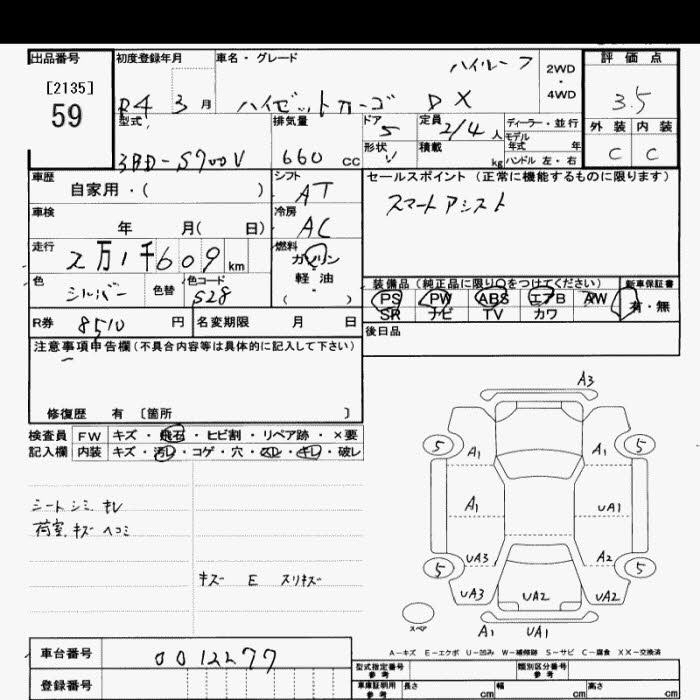 出品番号 初度登録年月 車名・グレード 評価点
[2135]
59
R4 3月 ハイゼットカーゴ DX ハイルーフ
2WD
・
4WD
3.5
型式 排気量 ドア 定員 ディーラー・並行 外装 内装
3BD-S700V 660cc 5 2/4人 モデル年式 年
形状 V 積載 kg ハンドル 左・右 C C
車歴 シフト セールスポイント (正常に機能するものに限ります)
自家用・( ) AT スマートアシスト
車検 冷房
年 月( 日) AC
走行 燃料
2万1千609km ガソリン
軽油
( )
色 色替 色コード
シルバー S28
装備品(純正品に限り○をつけてください) 新車保証書
PS PW ABS エアB AW 有・無
SR ナビ TV カワ
R券 8510円 名変期限 月 日
後日品
注意事項申告欄(不具合内容等は具体的に記入して下さい)
修復歴 有 〔箇所 〕
検査員 FW キズ・飛石・ヒビ割・リペア跡・×要
記入欄 内装 キズ・汚レ・コゲ・穴・スレ・キレ・破レ
シートシミ キレ
荷室.キズ ヘコミ
キズ E スリキズ
A3
5 A1 A1 5
A1 UA1
5 UA3 A2 5
UA3 UA2 UA2
スペア
A1 UA1
A-キズ E-エクボ U-凹み W-補修跡 S-サビ C-腐食 XX-交換済
車台番号 0012277
登録番号
型式指定番号 参考 類別区分番号 参考
車庫証明用 参考 長さ cm 幅 cm 高さ cm